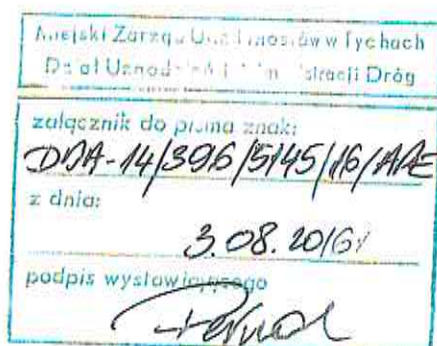 Miejski Zarząd Ulic i Mostów w Tychach
Dział Uzgodnień i Administracji Dróg
załącznik do pisma znak:
DDA-14/396/5145/16/APE
z dnia:
3.08.2016r
podpis wystawiającego